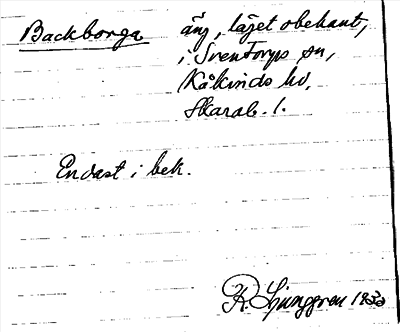 Backborga äng, läget obekant,
i Sventorps sn,
Kåkinds hd,
Skarab. l.
Endast i bek.
R. Ljunggren 1933